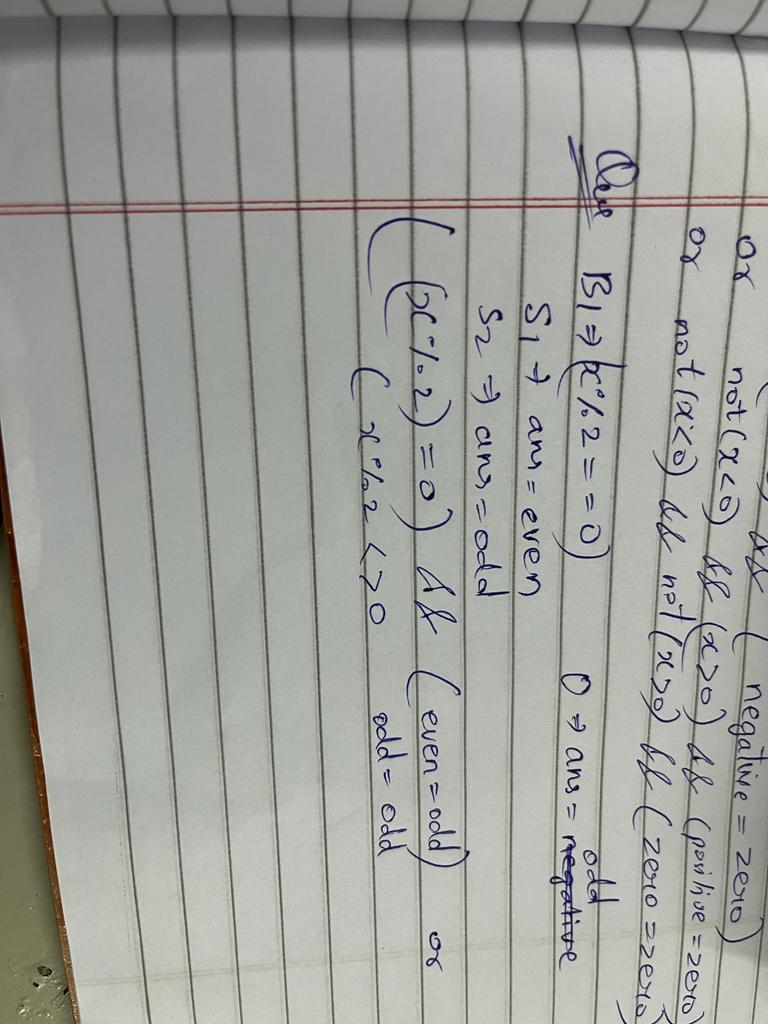 ) && ( negative = zero)
or not(x<0) && (x>0) && (positive = zero)
or not(x<0) && not(x>0) && (zero = zero)
Que B1 ⇒ (x%2==0) O ⇒ ans = negative odd
S1 → ans = even
S2 ⇒ ans = odd
( (x%2)=0) && (even = odd) or
( x%2 <>0 odd = odd